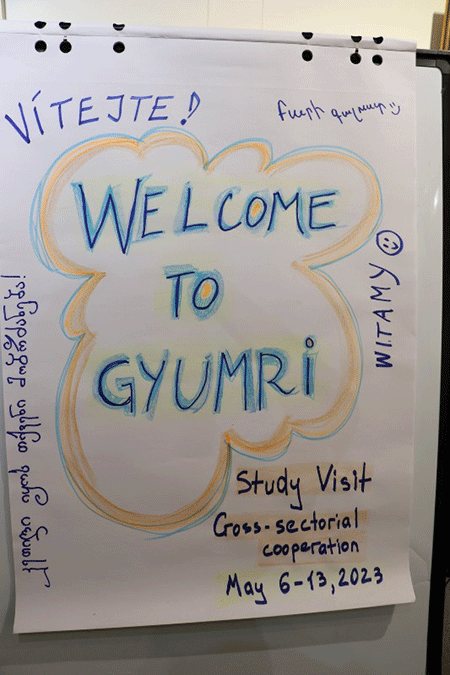 VÍTEJTE!
Բարի գալուստ
WELCOME
TO
GYUMRI
WITAMY
კეთილი იყოს თქვენი მობრძანება!
Study Visit
Cross-sectorial
cooperation
May 6-13, 2023